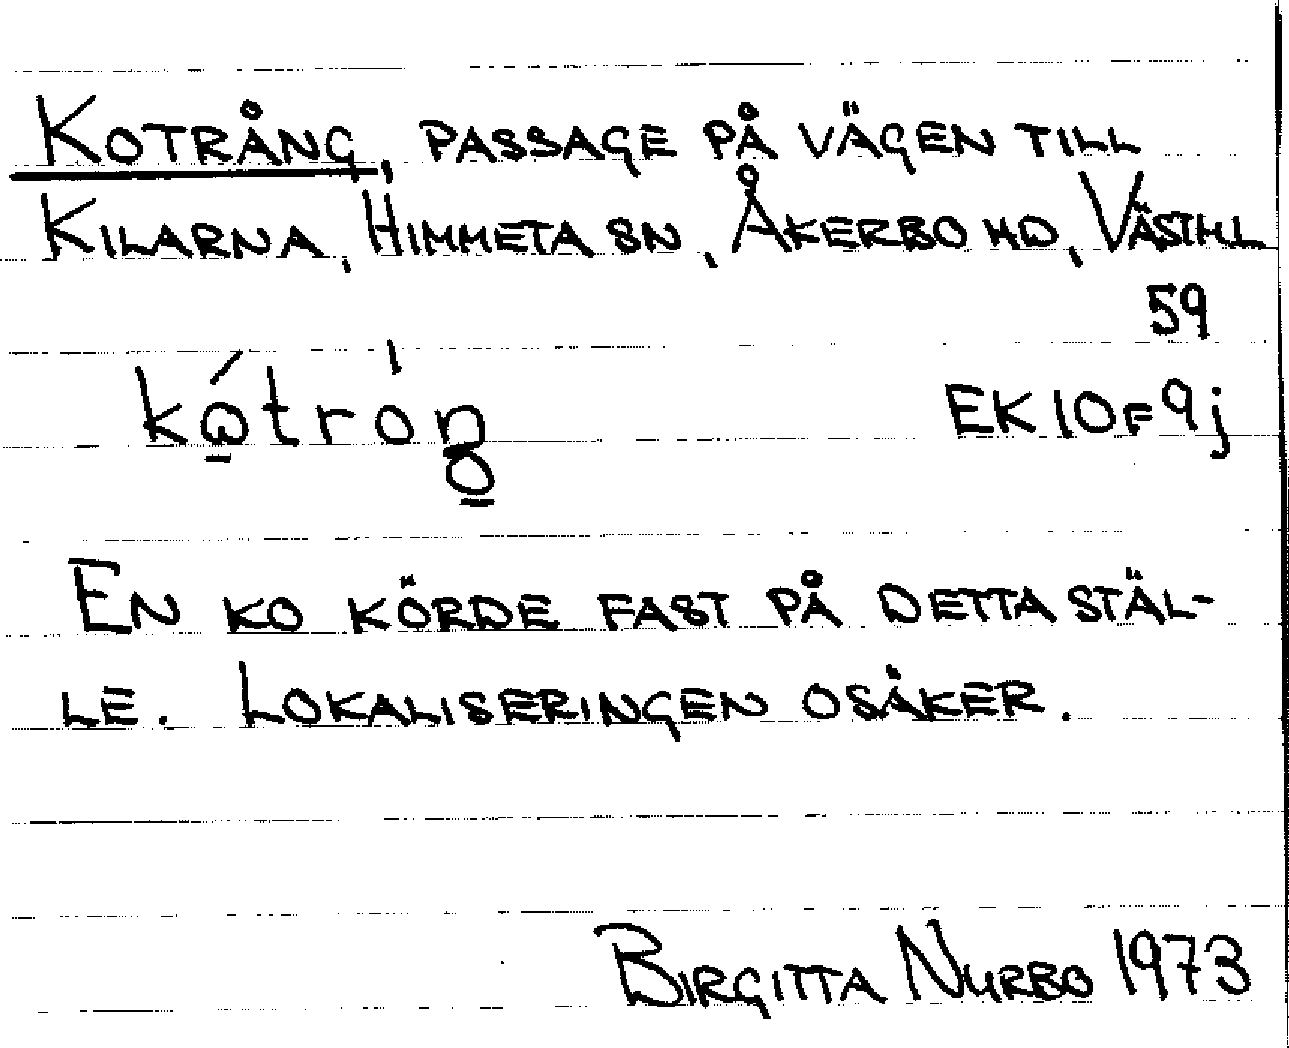 KOTRÅNG, PASSAGE PÅ VÄGEN TILL
KILARNA, HIMMETA SN, ÅKERBO HD, VÄSTML
59
EK 10F9j
EN KO KÖRDE FAST PÅ DETTA STÄL-
LE. LOKALISERINGEN OSÄKER.
BIRGITTA NURBO 1973